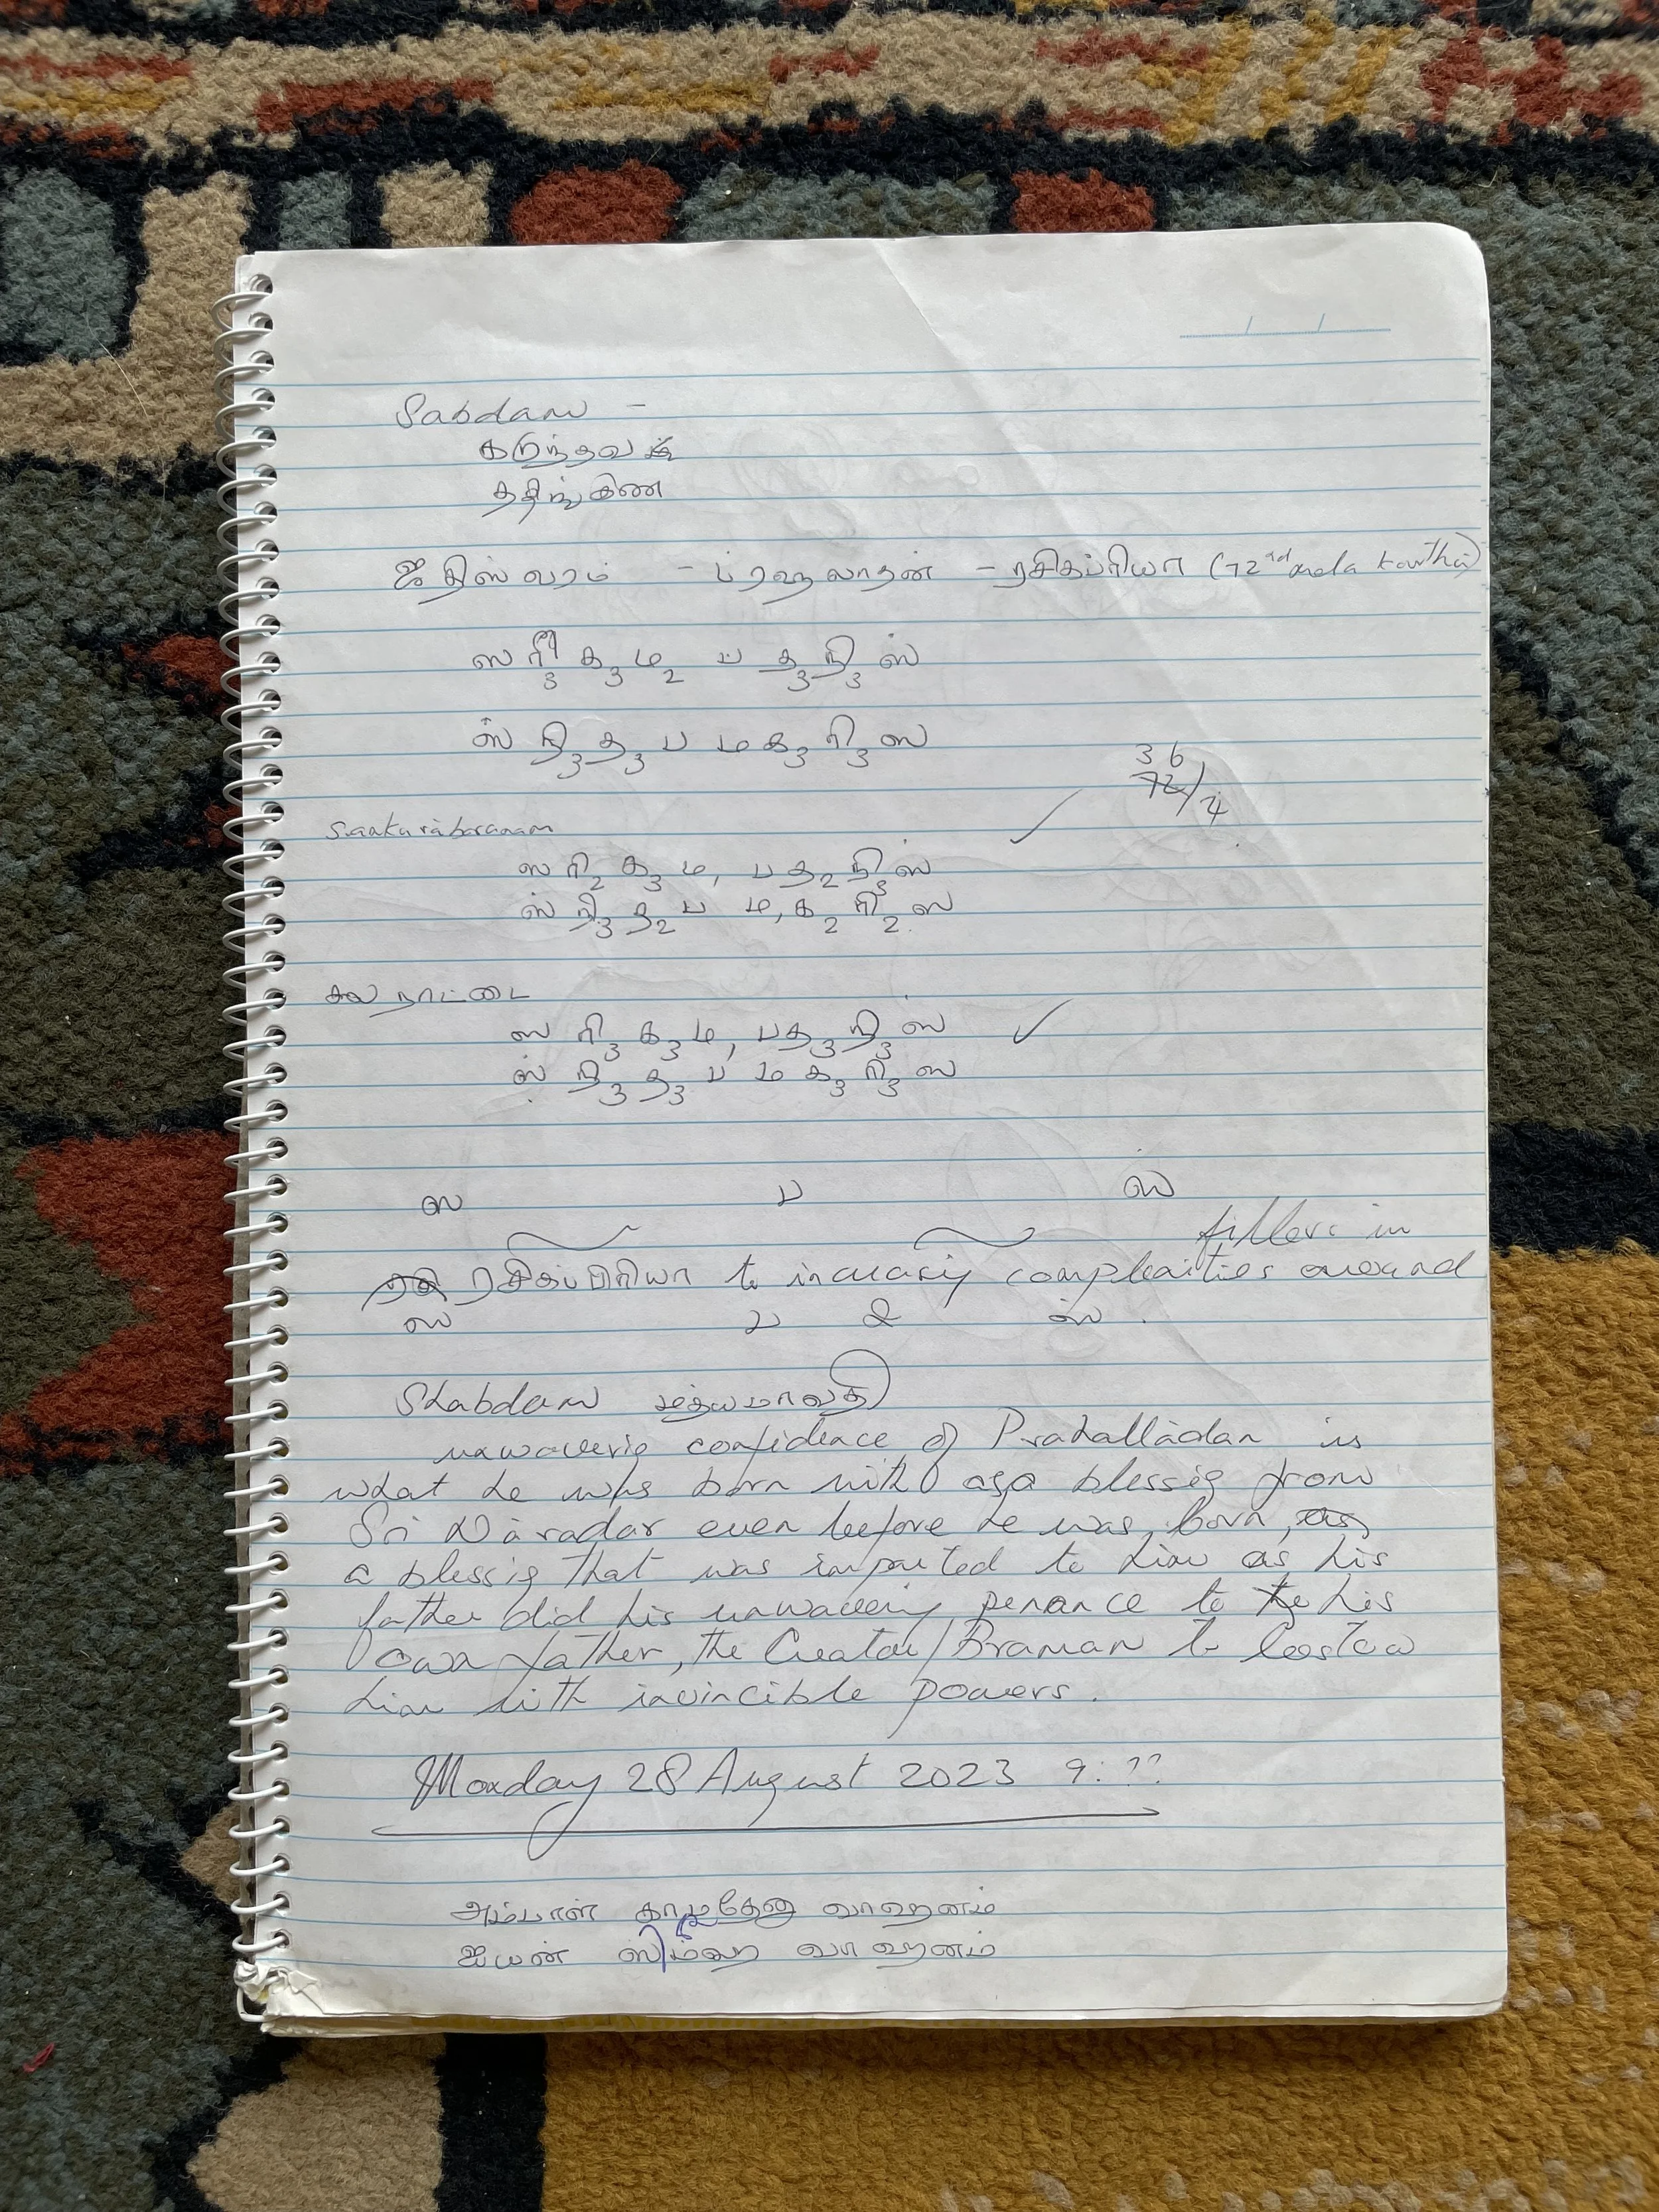 Sabdam -
கடுந்தவ
ததிங்கிண
ஜதிஸ்வரம் - ப்ரஹலாதன் - ரசிகப்ரியா (72nd mela kartha)
ஸ ரி3 க3 ம2 ப த3 நி3 ஸ்
ஸ் நி3 த3 ப ம க3 ரி3 ஸ
36
72/2
Sankarabaranam
ஸ ரி2 க3 ம, ப த2 நி3 ஸ்
ஸ் நி3 த2 ப ம, க2 ரி2 ஸ
சல நாட்டை
ஸ ரி3 க3 ம, ப த3 நி3 ஸ்
ஸ் நி3 த3 ப ம க3 ரி3 ஸ
ஸ ப ஸ்
fillers in
ரசிகப்பிரியா to increasig complexities around
ஸ ப & ஸ் .
Shabdam மத்யமாவதி
unwaverig confidence of Prahalladan is
what he was born with as a blessig from
Sri Naradar even before he was born, as
a blessig that was imparted to him as his
father did his unwaverig penance to the his
own father, the Creator/Braman to bestow
him with invincible powers.
Monday 28 August 2023 9:??
அம்பாள் காமதேனு வாஹனம்
ஐயன் ஸிம்ஹ வாஹனம்